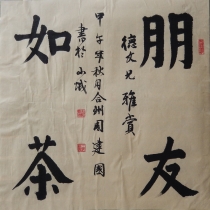 朋友
如茶
德文兄雅賞
甲午年秋月合州周建國
書於山城